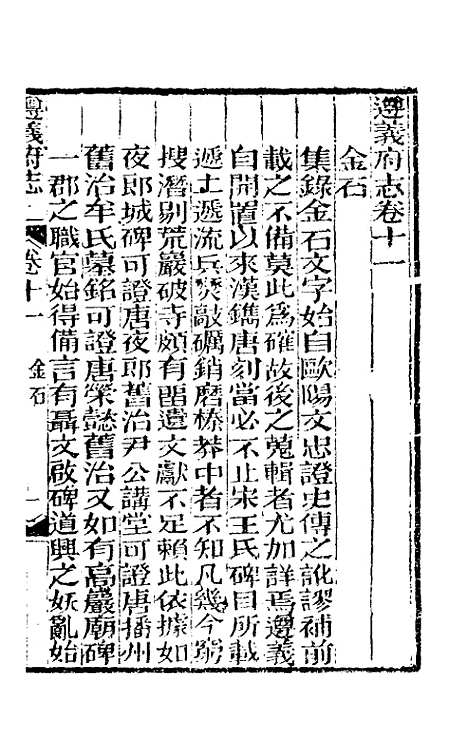 遵義府志卷十一
金石
集錄金石文字始自歐陽文忠證史傳之訛謬補前
載之不備莫此爲確故後之蒐輯者尤加詳焉遵義
自開置以來漢鐫唐刻當必不止宋王氏碑目所載
遞土遞流兵燹敲礪銷磨榛莽中者不知凡幾今窮
搜潛剔荒巖破寺頗有畱遺文獻不足賴此依據如
夜郎城碑可證唐夜郎舊治尹公講堂可證唐播州
舊治牟氏墓銘可證唐榮懿舊治又如有高巖廟碑
一郡之職官始得備言有聶文啟碑道興之妖亂始
遵義府志
卷十一
金石
一